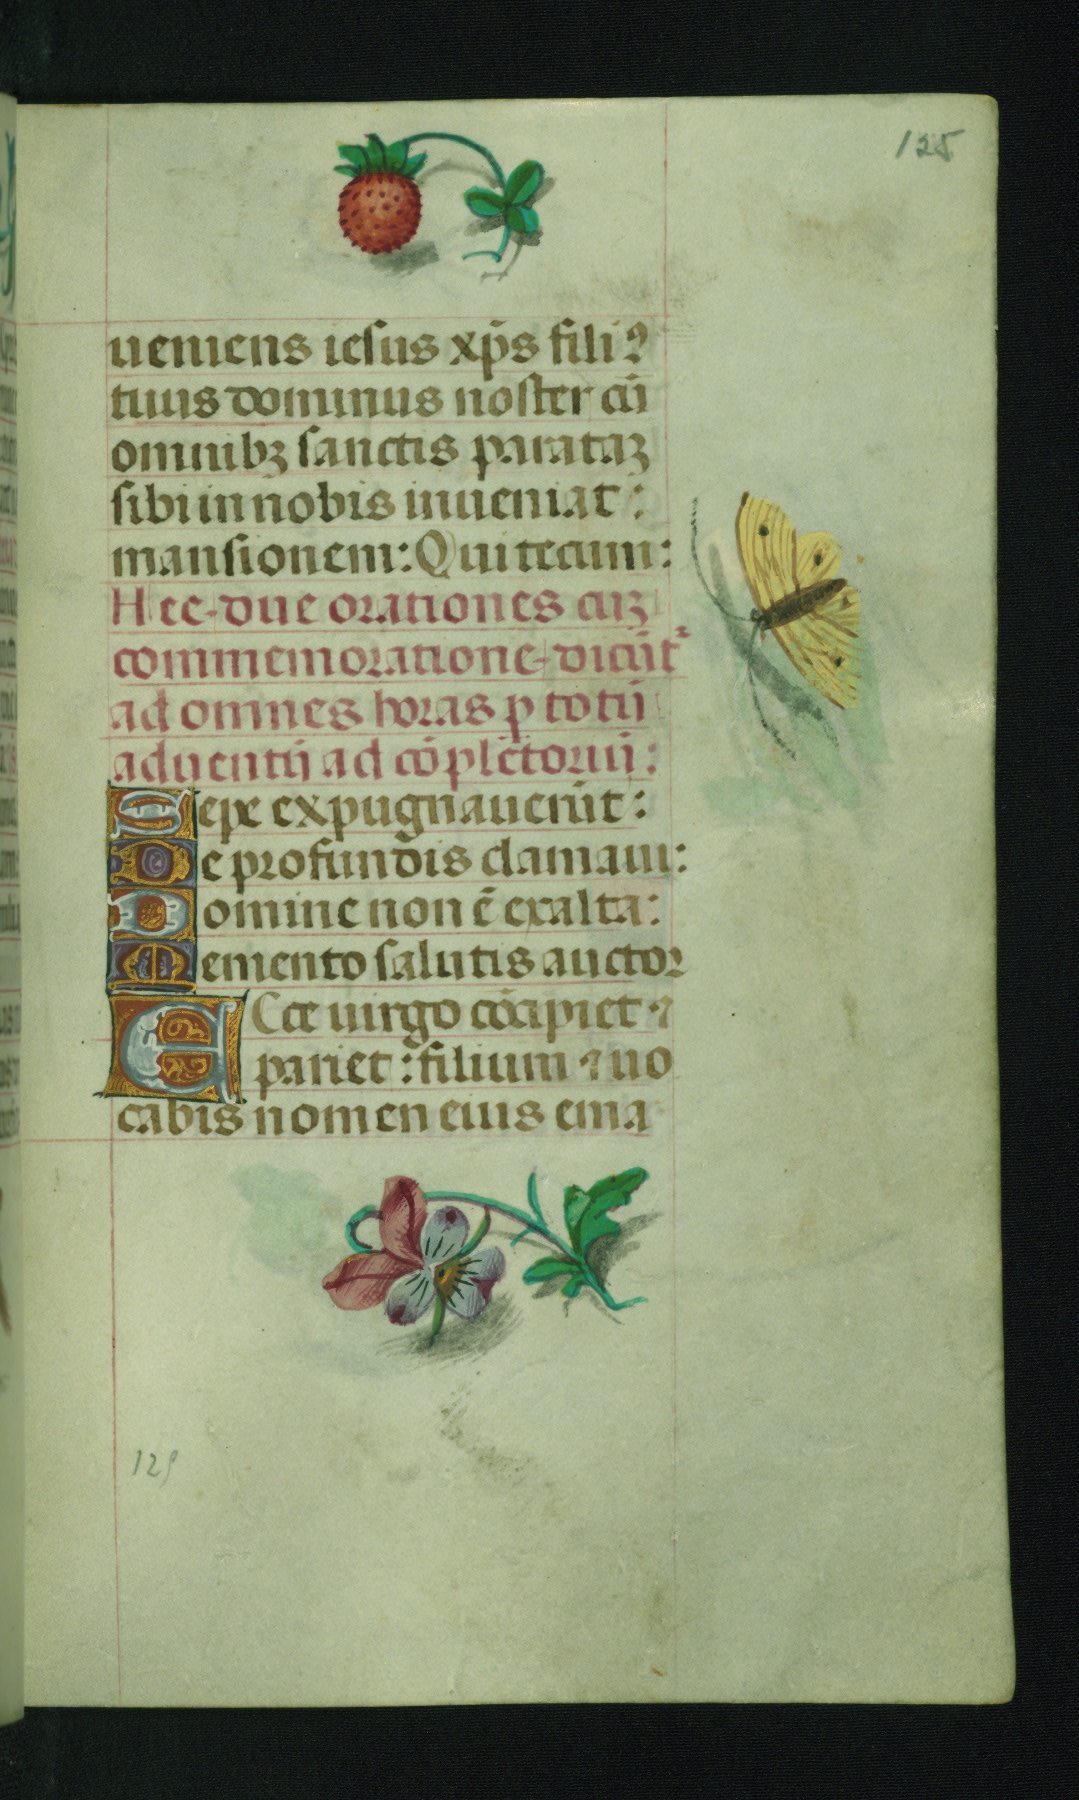 125
ueniens iesus xp̄s fili9
tuus dominus noster cū
omnibꝫ sanctis parataꝫ
sibi in nobis inueniat:
mansionem: Qui tecum:
Hec due orationes cuꝫ
commemoratione dicūtᷣ
ad omnes horas ꝑ totū
aduentū ad cōplētoriū:
Sepe expugnauerūt:
De profundis clamaui:
Domine non ē exalta:
Memento salutis auctor
ECce uirgo cōcipiet ⁊
pariet: filium ⁊ uo
cabis nomen eius ema
125